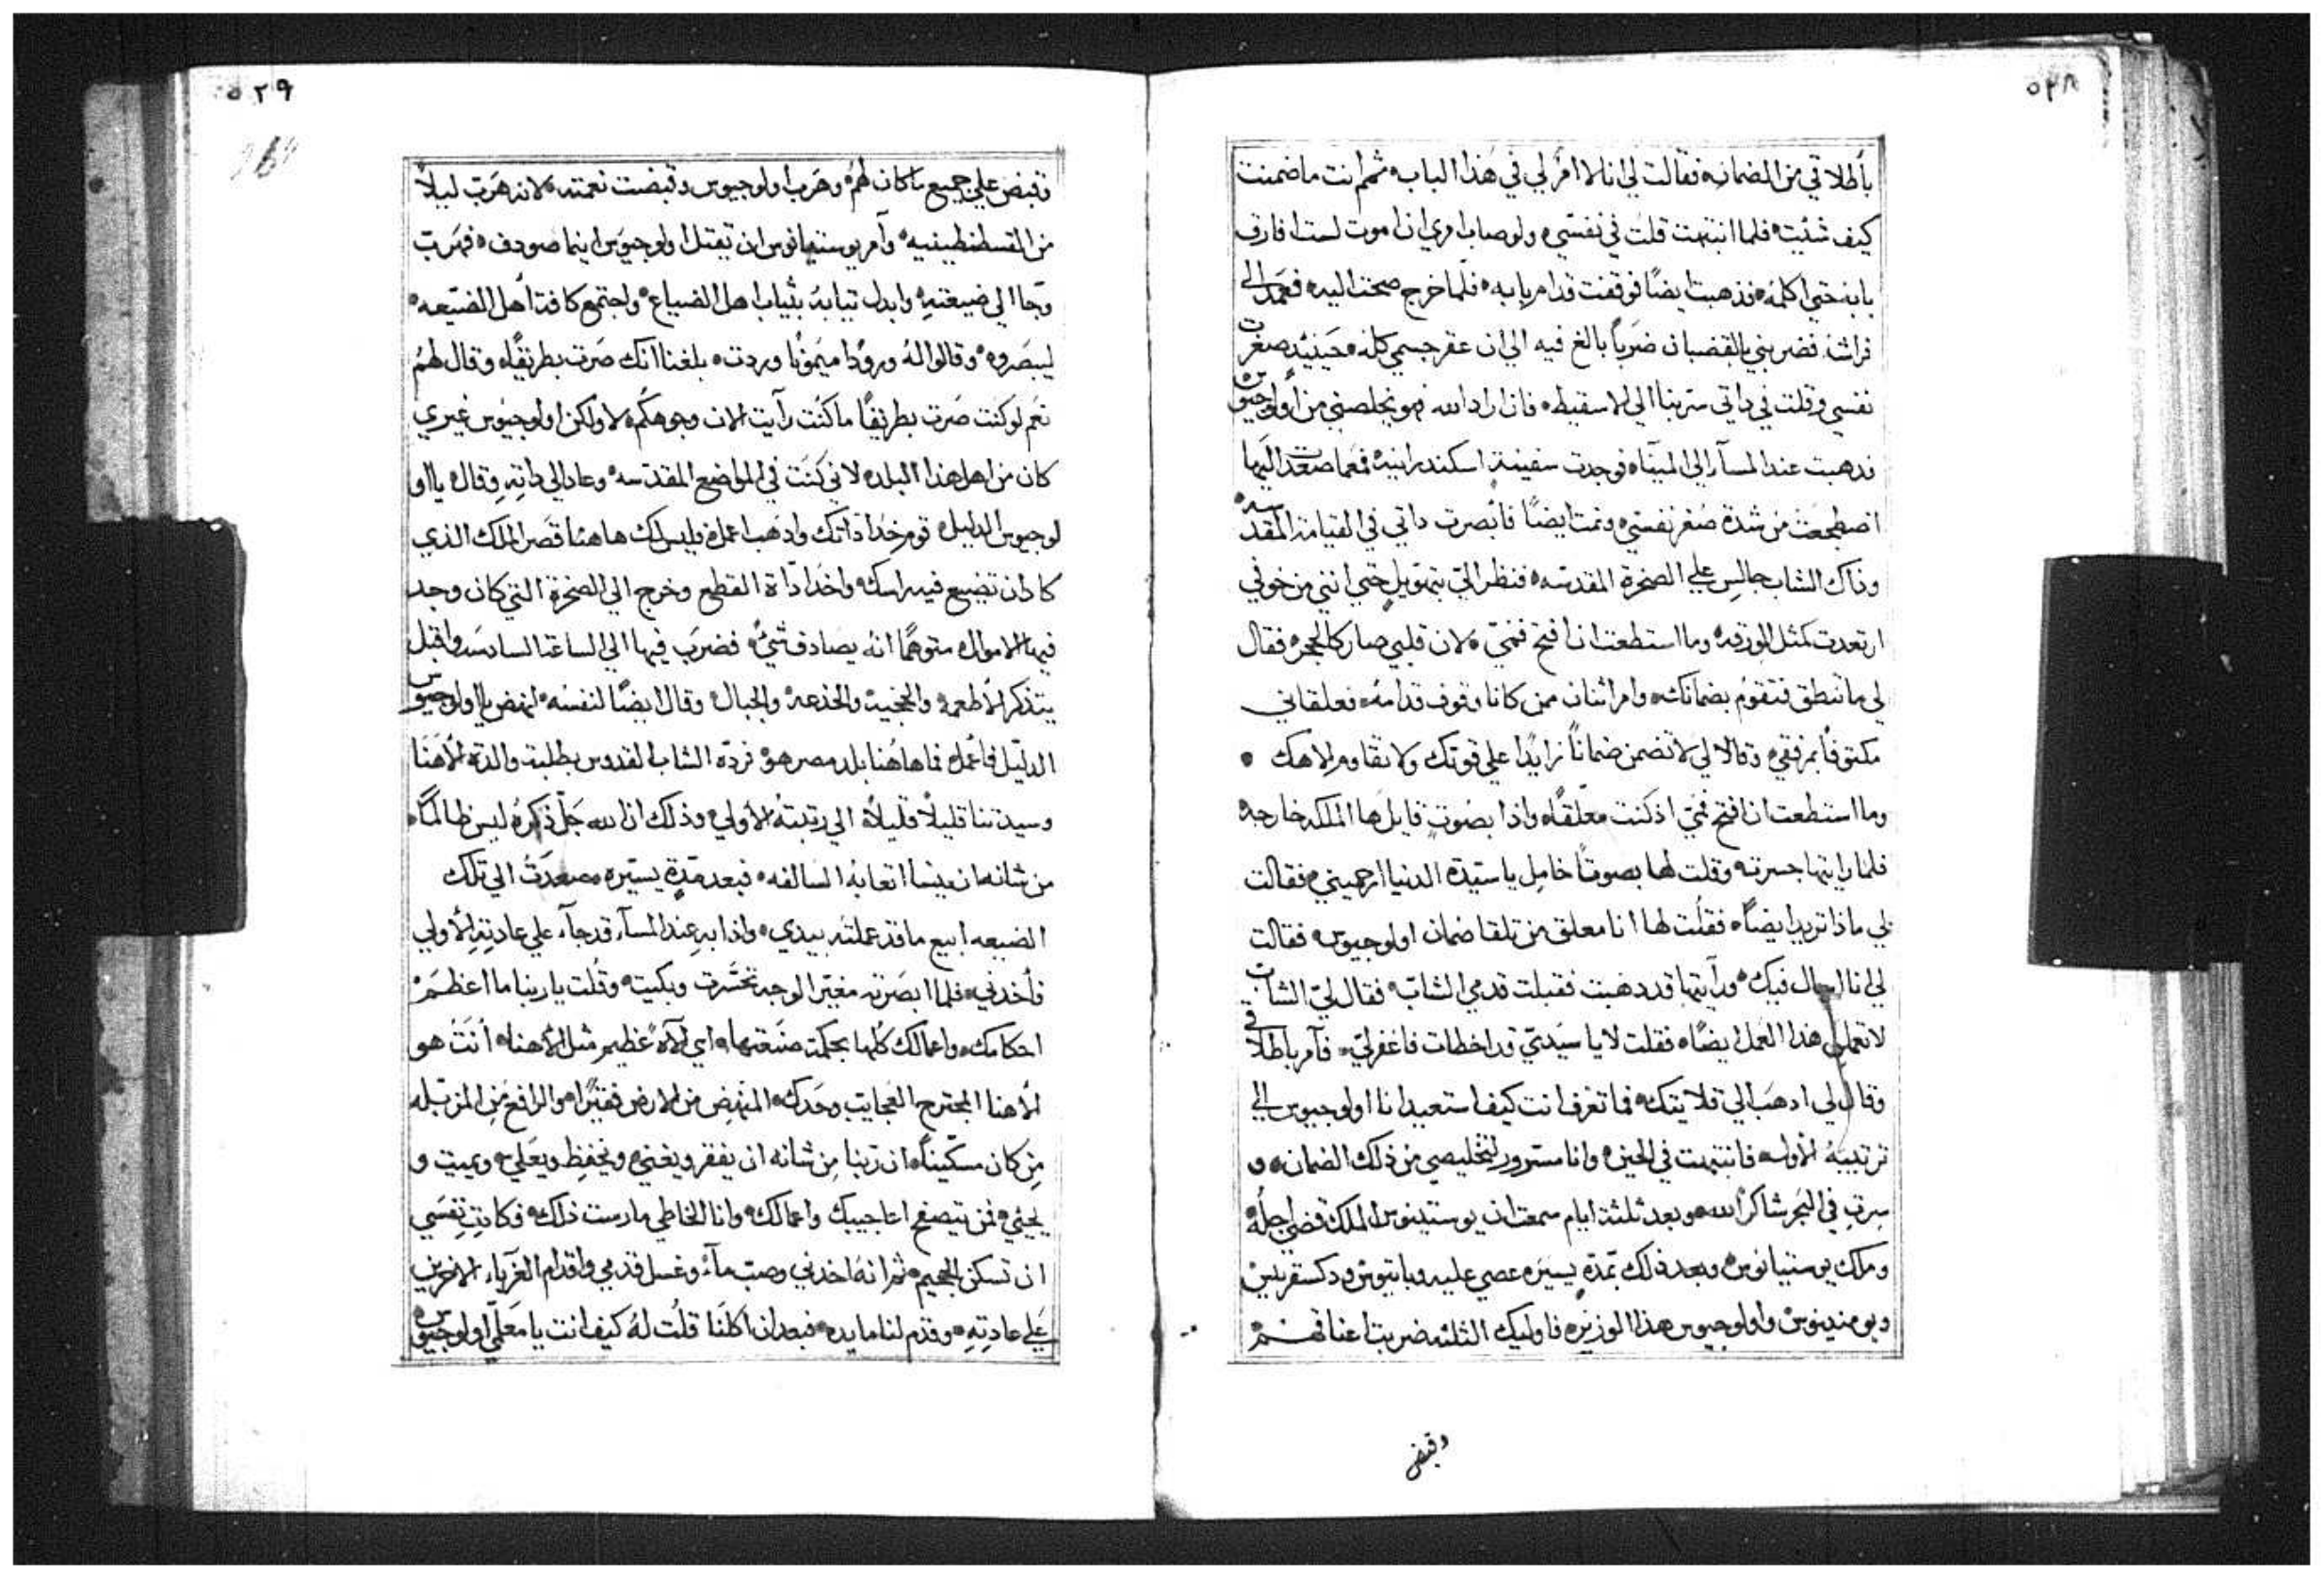 ٥٣٨
بأطلاقي من الضمانه فقالت لي انا لا امر لي في هذا الباب ثم انت ما ضمنت
كيف شئيت فلما انتبهت قلت في نفسي ولو صابا مري ان اموت لست افارق
بابه حتي اكلمه فذهبت ايضًا فوقفت قدام بابه فلما خرج صحت اليه فعمد الي
فراشه فضربني بالقضبان ضربًا بالغ فيه الي ان عقر جسمي كله حينيد صغرت
نفسي وقلت في داتي سر بنا الي الاسقيط فان اراد الله فهو يخلصني من اولوجيوس
فدهبت عند المسآ الي المينآ فوجدت سفينة اسكندرانيه فعما صعدت اليها
اضطجعت من شدة صغر نفسي ونمت ايضًا فأبصرت داتي في القيامة المقدسه
وذاك الشاب جالس علي الصخرة المقدسه فنظر الي بتهويل حتي انني من خوفي
ارتعدت كمثل الورقه وما استطعت ان افتح فمي لان قلبي صار كالحجر فقال
لي ما تنطق فتقوم بضمانك وامر اثنان ممن كانا وقوف قدامه فعلقاني
مكتوفًا بمرفقي وقالا لي لا تضمن ضمانًا زايدًا علي قوتك ولا تقاوم لالاهك
وما استطعت ان افتح فمي اذ كنت معلقًا واذا بصوت قايل ها الملكه خارجه
فلما رايتها جسرت وقلت لها بصوتًا خامل يا ستيدة الدنيا ارحميني فقالت
لي ماذا تريد ايضًا فقلت لها انا معلق من تلقا ضمان اولوجيوس فقالت
لي انا اسال فيك ورآيتها قد دهبت فقبلت قدمي الشاب فقال لي الشاب
لا تعمل هذا العمل ايضًا فقلت لا يا سيدي قد اخطات فاغفر لي فآمر باطلاقي
وقال لي ادهب الي قلايتك فما تعرف انت كيف استعيد انا اولوجيوس الي
ترتيبه الاول فانتبهت في الحين وانا مسرور لتخليصي من ذلك الضمان و
سرت في البحر شاكرًا لله وبعد ثلثة ايام سمعت ان يوستينوس الملك قضي اجله
وملك يوستيانوس وبعد ذلك بمدة يسيره عصي عليه وباتيوس ودكستقريتس
ديومندينوس واولوجيوس هذا الوزير فاوليك الثلثه ضربت اعناقهم
وقبض
٥٣٩
وقبض علي جميع ما كان لهم وهرب اولوجيوس وقبضت نعمته لانه هرب ليلاً
من القسطنطينيه وآمر يوستيانوس ان يقتل اولوجيوس اينما صودف فهرب
وجا الي ضيعته وابدل تيابه بثياب اهل الضياع واجتمع كافة اهل الضيعه
ليبصروه وقالوا له ورودًا ميمونًا وردت بلغنا انك صرت بطريقًا وقال لهم
نعم لو كنت صرت بطريقًا ما كنت رآيت الان وجوهكم لا ولكن اولوجيوس غيري
كان من اهل هذا البلد لاني كنت في المواضع المقدسه وعاد الي داته وقال يا او
لوجيوس الدليل قوم خد اداتك وادهب اعمل فليس لك هاهنا قصر الملك الذي
كاد ان تضيع فيه راسك واخد اداة القطع وخرج الي الصخرة التي كان وجد
فيها الاموال متوهمًا انه يصادف شيء فضرب فيها الي الساعة السادسه واقبل
يتذكر الاطعمه والحجبة والخدعه والجبال وقال ايضًا لنفسه انهض يا اولوجيوس
الدليل فاعمل فهاهنا بلد مصر هو فرده الشاب القدوس بطلبة والدة الاهنا
وسيدتنا قليلاً قليلاً الي رتبته الاولي وذلك ان الله جل ذكره ليس ظالمًا
من شانه ان ينسا اتعابه السالفه فبعد مدة يسيره صعدت الي تلك
الضيعه ابيع ما قد عملته بيدي واذا به عند المسآ قد جآ علي عادته الاولي
فأخدني فلما ابصرته مغبر الوجه تحسرت وبكيت وقلت يا ربنا ما اعظم
احكامك واعمالك كلها بحكمة صنعتها اي آلاه عظيم مثل الاهنا انت هو
الاهنا المجترح العجايب وحدك المنهض من الارض فقيرًا والرافع من المزبله
من كان مسكينًا ان ربنا من شانه ان يفقر ويغني ويخفظ ويعلي ويميت و
يحيي فمن يتصفح اعاجيبك واعمالك وانا الخاطي مارست ذلك وكادت نفسي
ان تسكن الجحيم ثم انه اخدني وصب مآء وغسل قدمي واقدام الغرباء الاخرين
علي عادته وقدم لنا مايده فبعد ان اكلنا قلت له كيف انت يا معلمي اولوجيوس